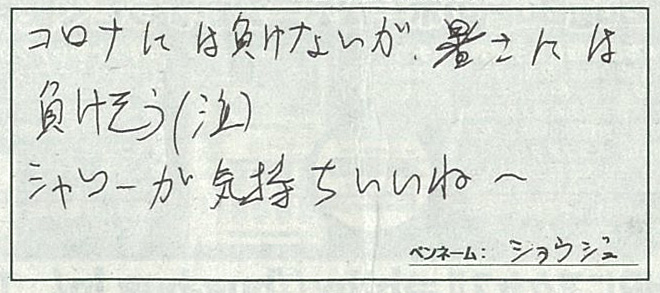 コロナには負けないが、暑さには
負けそう(泣)
シャワーが気持ちいいね〜
ペンネーム： ショウジュ